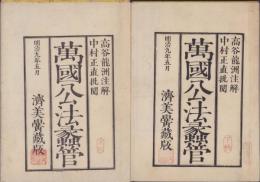 高谷龍洲注解
中村正直批閲
萬國公法蠡管
明治九年五月
濟美黌藏版
高谷龍洲注解
中村正直批閲
萬國公法蠡管
明治九年五月
濟美黌藏版